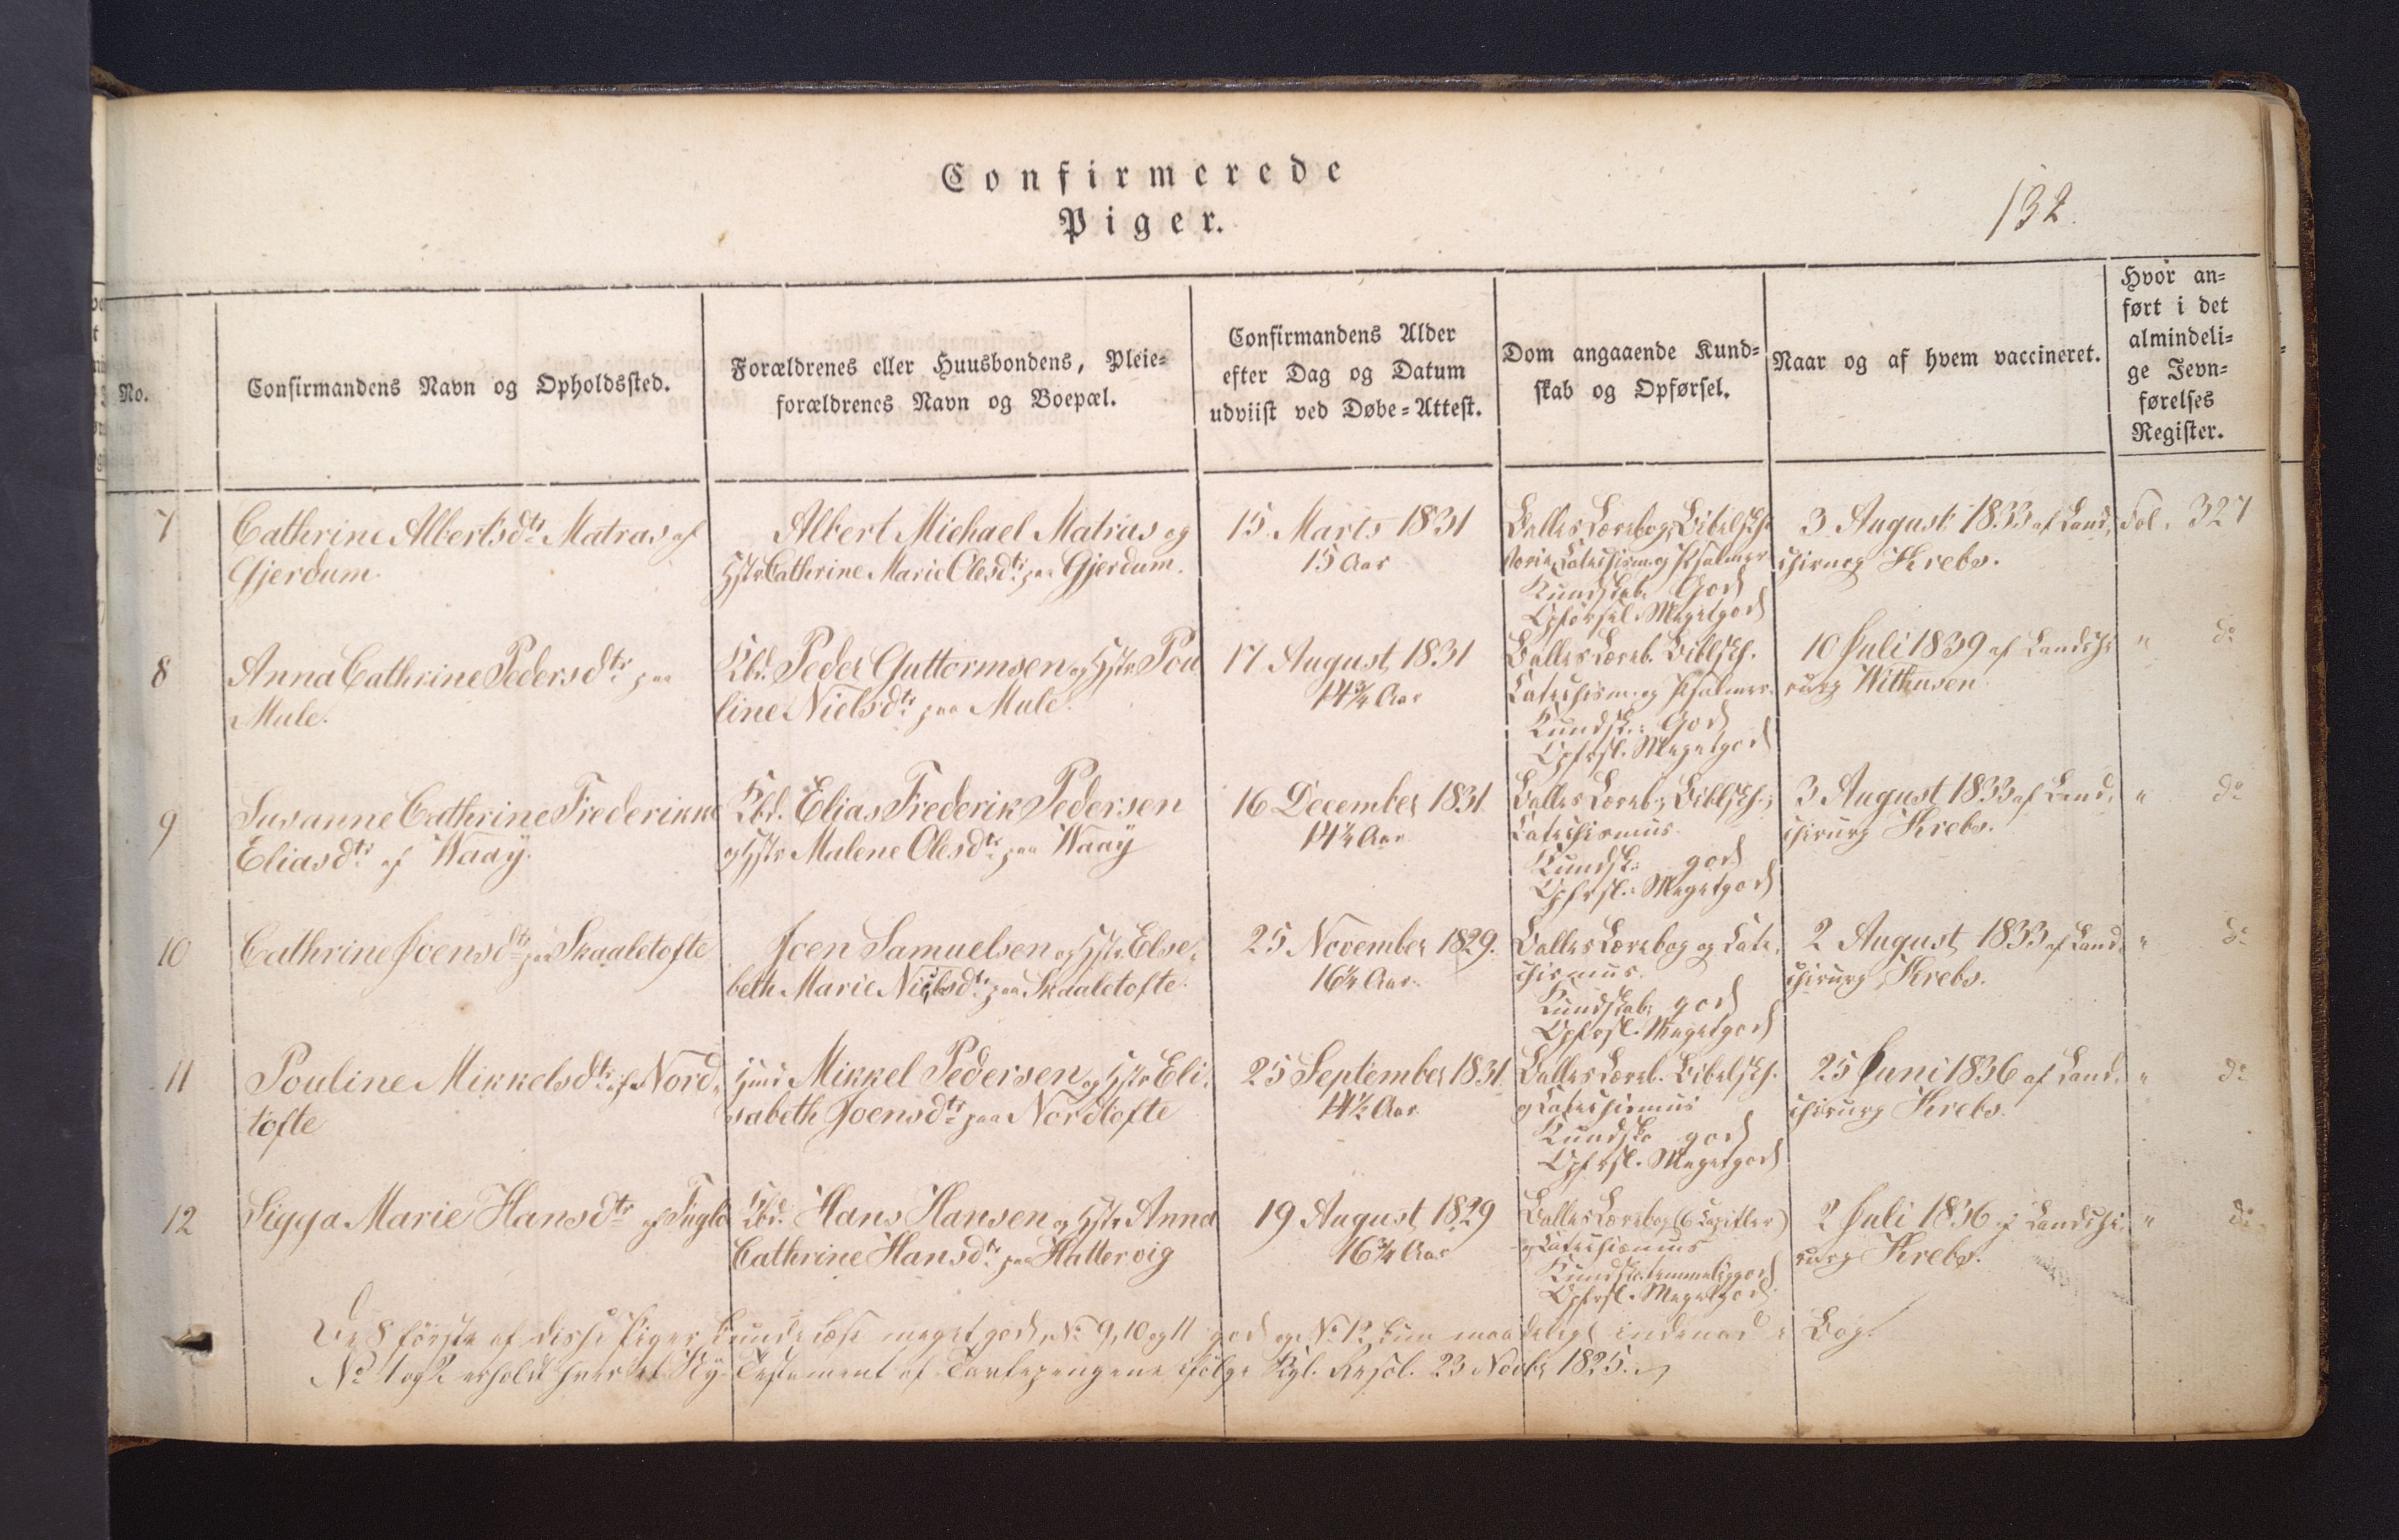 Confirmerede
Piger.
132.
No.
Confirmandens Navn og Opholdssted.
Forældrenes eller Huusbondens, Pleie=
forældrenes Navn og Boepæl.
Confirmandens Alder
efter Dag og Datum
udviist ved Døbe=Attest.
Dom angaaende Kund=
skab og Opførsel.
Naar og af hvem vaccineret.
Hvor an=
ført i det
almindeli=
ge Jevn=
førelses
Register.
7
Cathrine Albertsdtr Matras af
Gjerdum.
Albert Michael Matras og
Hstr Cathrine Marie Olesdtr paa Gjerdum.
15 Marts 1831
15 Aar
Balles Lærebog, Bibelshi-
storie, Catechism. og Psalmer
Kundskab. God
Opførsel. Meget god
3 August 1833 af Land,
chirurg Krebs.
Fol. 327
8
Anna Cathrine Pedersdtr paa
Mule.
Kbd. Peder Guttormsen og Hstr Pou
line Nielsdtr paa Mule.
17 August 1831
14¾ Aar
Balles Læreb. Biblsh.
Catechism. og Psalmer.
Kundsk.: God
Opfrsl. Meget god
10 Juli 1839 af Landchi
rurg Withusen
" do
9
Susanne Cathrine Frederikke
Eliasdtr af Waay.
Kbd. Elias Frederik Pedersen
og Hstr Malene Olesdtr paa Waay
16 December 1831
14¼ Aar
Balles Læreb., Biblsh.,
Catechismus.
Kundsk.: god
Opfrsl.: Meget god
3 August 1833 af Land,
chirurg Krebs.
" do
10
Cathrine Joensdtr paa Skaaletofte
Joen Samuelsen og Hstr Else,
beth Marie Nielsdtr paa Skaaletofte.
25 November 1829.
16¼ Aar.
Balles Lærebog og Cate,
chismus.
Kundskab: god
Opfrsl. Meget god
2 August 1833 af Land,
chirurg Krebs.
" do
11
Pouline Mikkelsdtr af Nord,
tofte
Hmd Mikkel Pedersen og Hstr Eli,
sabeth Joensdtr paa Nordtofte
25 September 1831.
14½ Aar
Balles Læreb. Bibelsh.
og Catechismus
Kundsk. god
Opfrsl. Meget god
25 Juni 1836 af Land,
chirurg Krebs.
" do
12
Sigga Marie Hansdtr af Fuglø
Kbd. Hans Hansen og Hstr Anna
Cathrine Hansdtr paa Hattervig
19 August 1829
16¾ Aar
Balles Lærebog (6 Capitler)
og Catechismus
Kundsk. temmelig god
Opfrsl. Meget god
2 Juli 1836 af Landchi,
rurg Krebs.
" do
De 8 første af disse Piger kunde læse meget godt, No 9, 10 og 11 godt og No 12 kun maadeligt indenad i Bog.
No 1 og 2 erholdt hver et Ny Testament af Tavlepengene ifølge Kgl. Resol. 23 Novbr 1825.